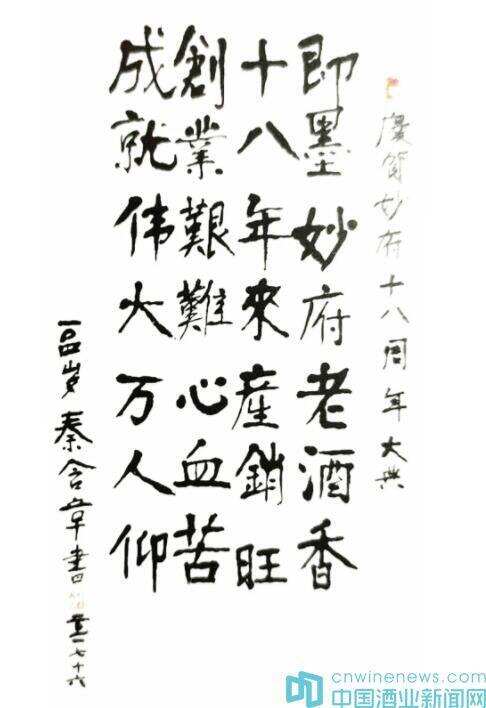 慶賀妙府十八周年大典
即墨妙府老酒香
十八年來產銷旺
創業艱難心血苦
成就伟大万人仰
一〇四岁秦含章書
cnwinenews.com
中国酒业新闻网